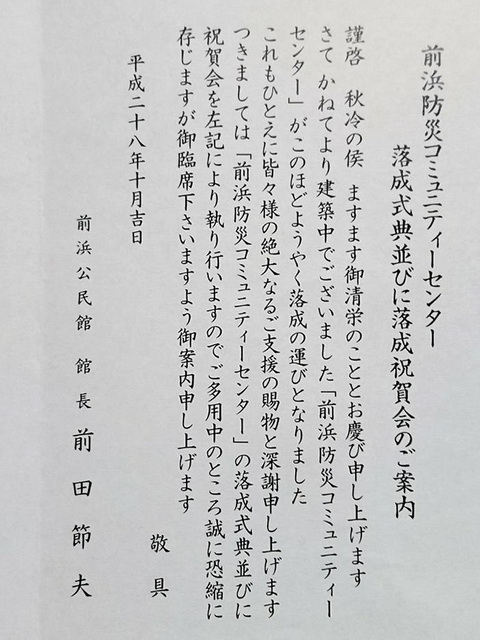 前浜防災コミュニティーセンター
落成式典並びに落成祝賀会のご案内
謹啓 秋冷の侯 ますます御清栄のこととお慶び申し上げます
さて かねてより建築中でございました「前浜防災コミュニティー
センター」がこのほどようやく落成の運びとなりました
これもひとえに皆々様の絶大なるご支援の賜物と深謝申し上げます
つきましては「前浜防災コミュニティーセンター」の落成式典並びに
祝賀会を左記により執り行いますのでご多用中のところ誠に恐縮に
存じますが御臨席下さいますよう御案内申し上げます
敬具
平成二十八年十月吉日
前浜公民館 館長 前田節夫